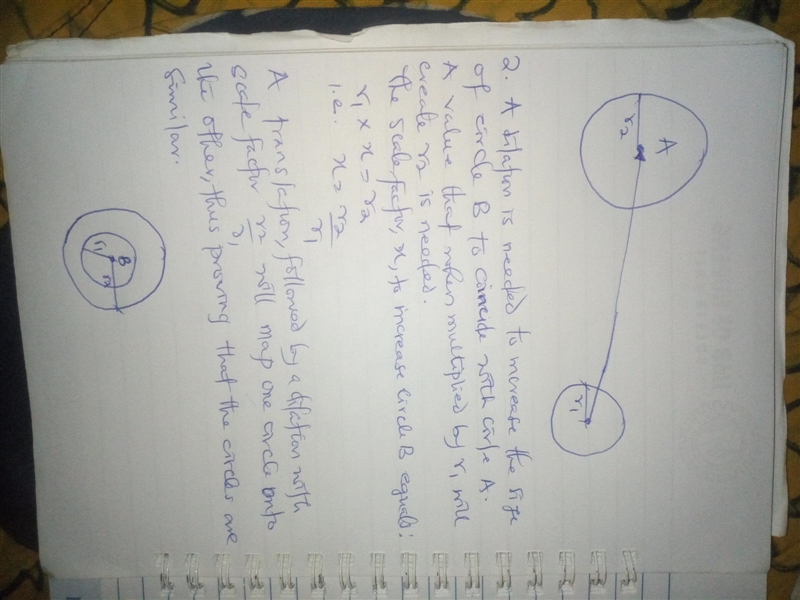 A
r2
r1
2. A dilation is needed to increase the size
of circle B to coincide with circle A.
A value that when multiplied by r1 will
create r2 is needed.
the scale factor, x, to increase circle B equals:
r1 × x = r2
i.e. x = r2
r1
A translation, followed by a dilation with
scale factor r2 will map one circle onto
r1
the other, thus proving that the circles are
similar.
B
r1
r2